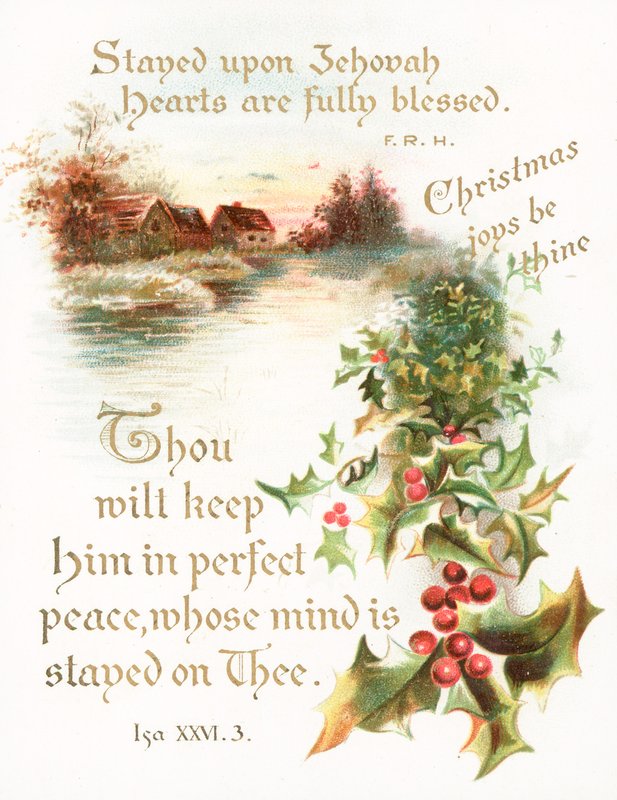 Stayed upon Jehovah
hearts are fully blessed.
F. R. H.
Christmas
joys be
thine
Thou
wilt keep
him in perfect
peace, whose mind is
stayed on Thee.
Isa XXVI. 3.